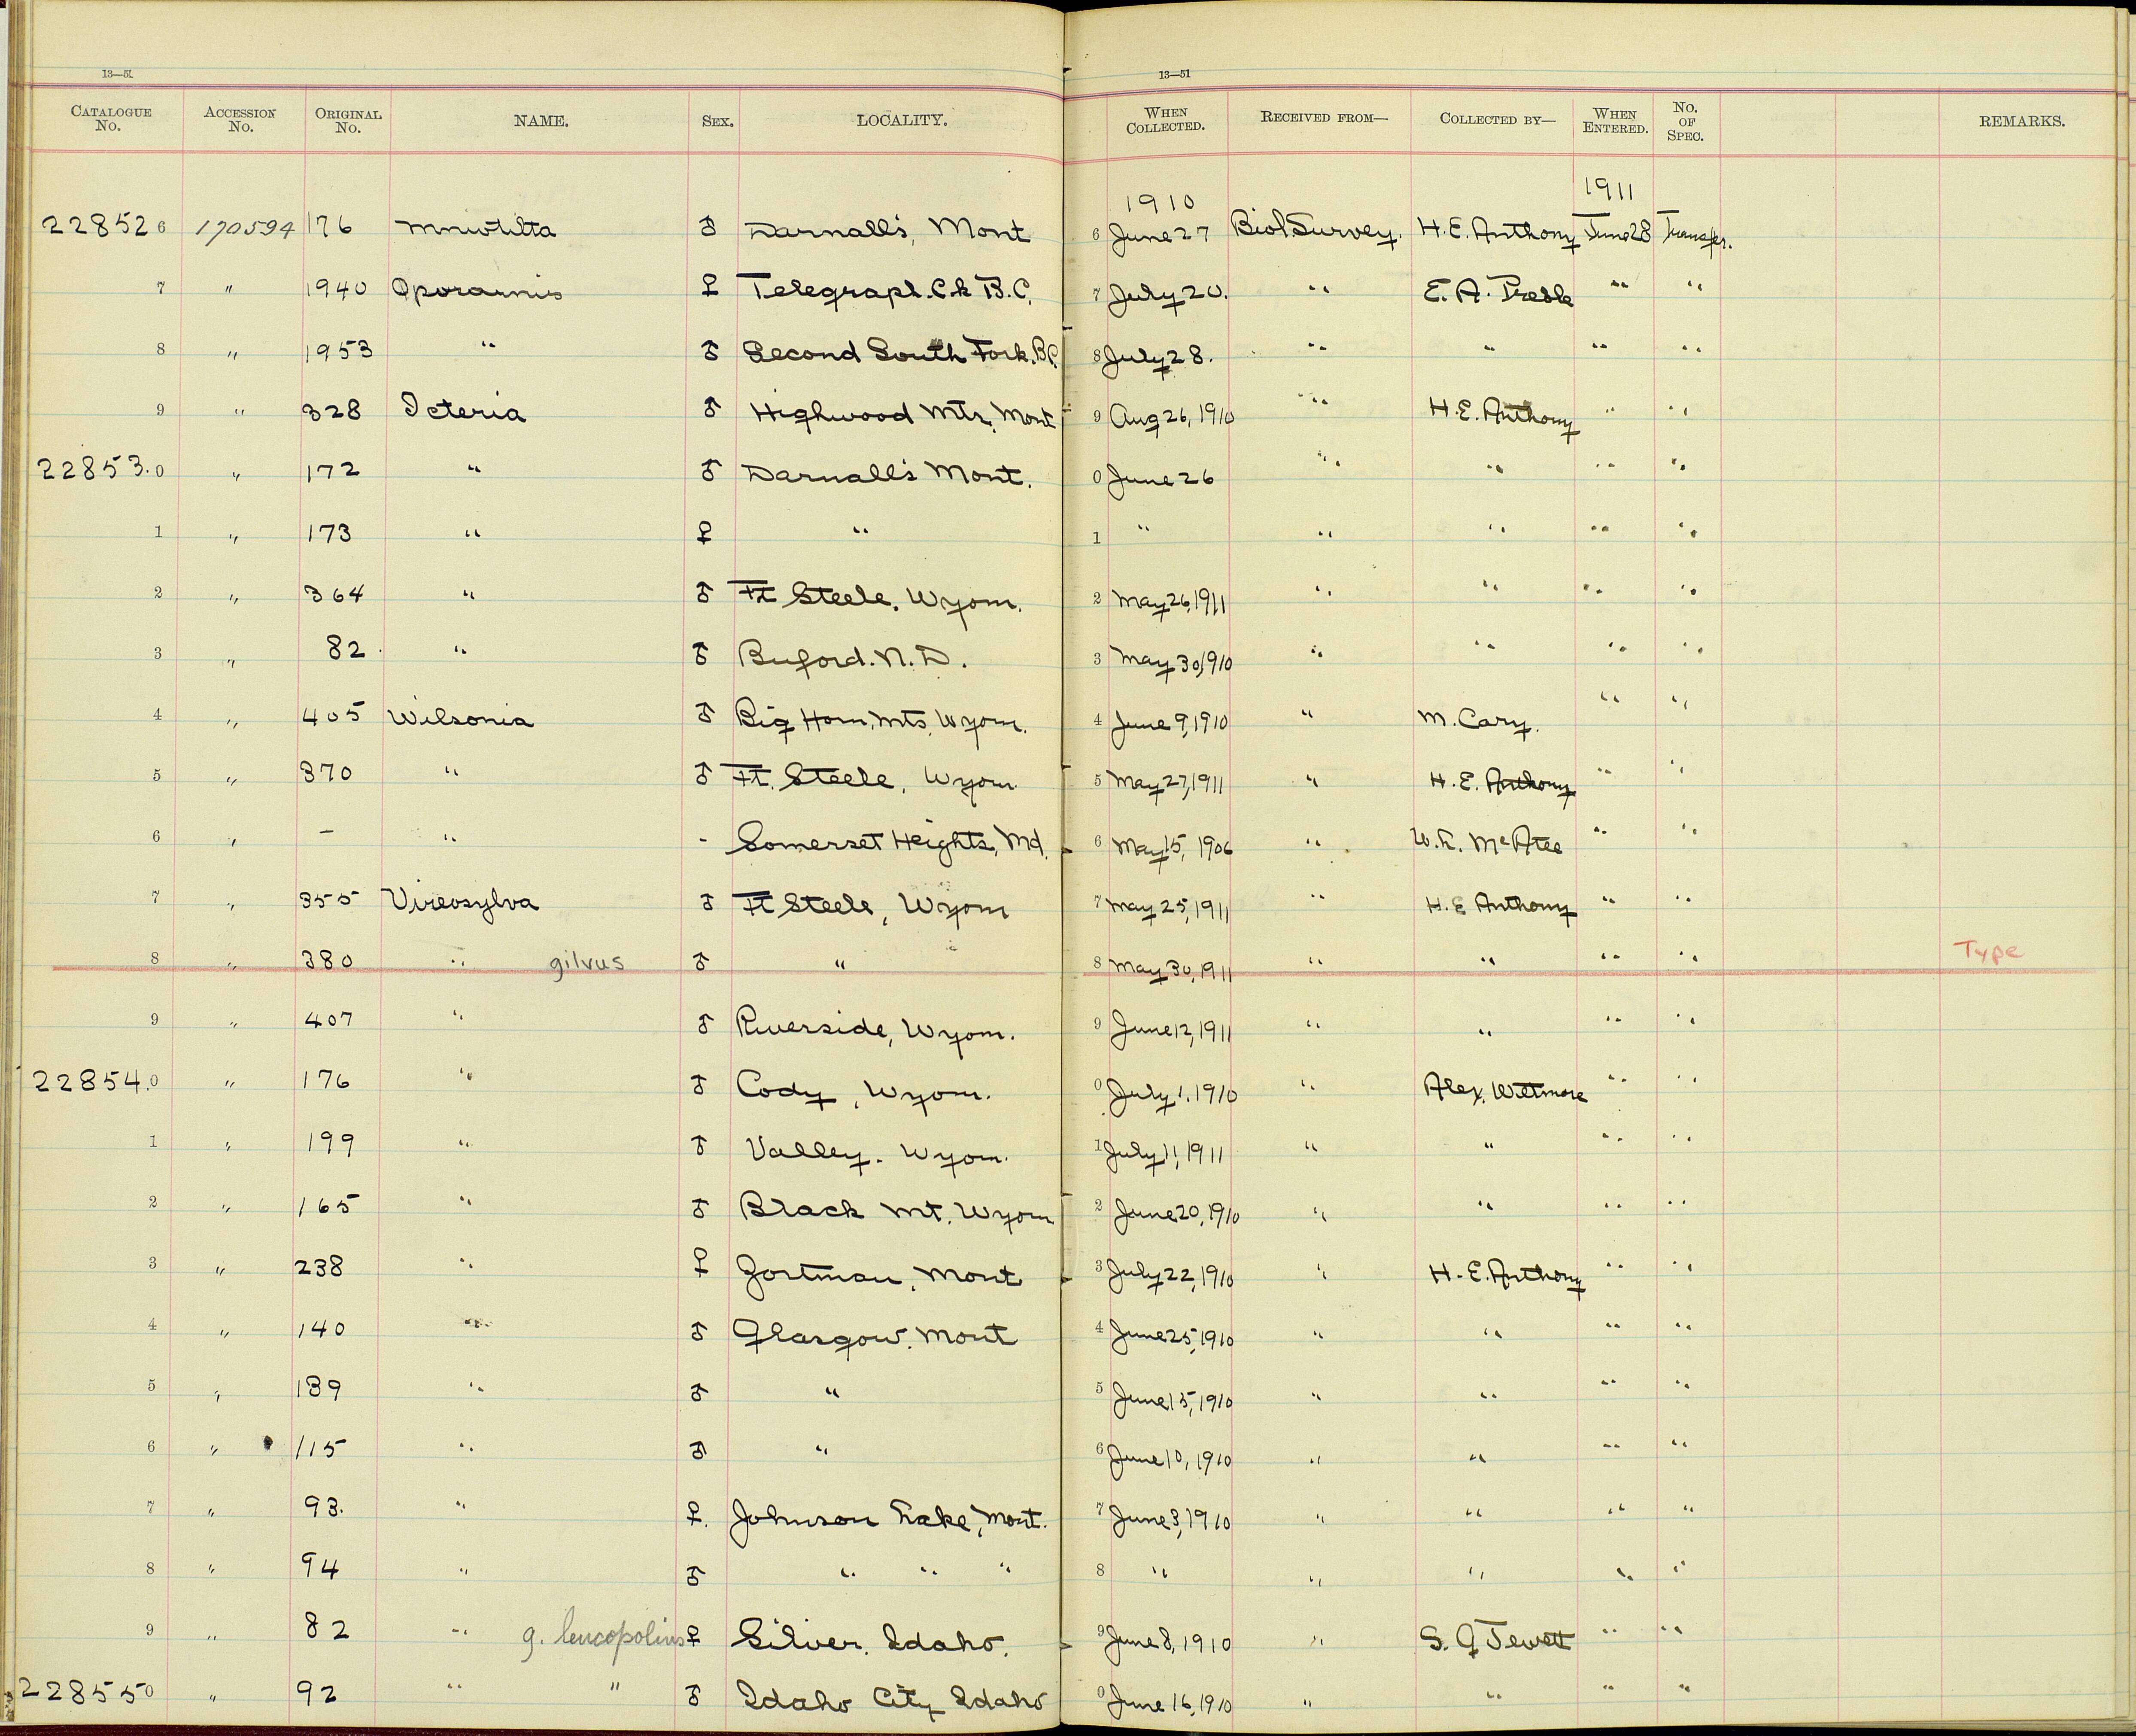 13—51 13—51
CATALOGUE No. ACCESSION No. ORIGINAL No. NAME. SEX. LOCALITY. WHEN COLLECTED. RECEIVED FROM— COLLECTED BY— WHEN ENTERED. No. OF SPEC. REMARKS.
1910 1911
228526 170594 176 Mniotilta ♂ Darnall's, Mont 6 June 27 Biol Survey. H. E. Anthony June 28 Transfer.
7 " 1940 Oporornis ♀ Telegraph. Ck B.C. 7 July 20. " E. A. Preble " "
8 " 1953 " ♂ Second South Fork. B.C. 8 July 28. " " " "
9 " 328 Icteria ♂ Highwood Mts, Mont 9 Aug 26, 1910 " H. E. Anthony " "
22853.0 " 172 " ♂ Darnall's Mont. 0 June 26 " " " "
1 " 173 " ♀ " 1 " " " " "
2 " 364 " ♂ Ft Steele, Wyom. 2 May 26, 1911 " " " "
3 " 82. " ♂ Buford. N. D. 3 May 30, 1910 " " " "
4 " 405 Wilsonia ♂ Big Horn, Mts, Wyom. 4 June 9, 1910 " M. Cary. " "
5 " 370 " ♂ Ft. Steele, Wyom 5 May 27, 1911 " H. E. Anthony " "
6 " — " - Somerset Heights, Md. 6 May 15, 1906 " W. L. McAtee " "
7 " 355 Vireosylva ♂ Ft Steele, Wyom 7 May 25, 1911 " H. E Anthony " "
8 " 380 " gilvus ♂ " 8 May 30, 1911 " " " " Type
9 " 407 " ♂ Riverside, Wyom. 9 June 12, 1911 " " " "
22854.0 " 176 " ♂ Cody, Wyom. 0 July 1, 1910 " Alex. Wetmore " "
1 " 199 " ♂ Valley. Wyom. 1 July 11, 1911 " " " "
2 " 165 " ♂ Black Mt. Wyom 2 June 20, 1910 " " " "
3 " 238 " ♀ Zortman, Mont 3 July 22, 1910 " H. E. Anthony " "
4 " 140 " ♂ Glasgow. Mont 4 June 25, 1910 " " " "
5 " 139 " ♂ " 5 June 15, 1910 " " " "
6 " 115 " ♂ " 6 June 10, 1910 " " " "
7 " 93. " ♀. Johnson Lake, Mont. 7 June 3, 1910 " " " "
8 " 94 " ♂ " " " 8 " " " " "
9 " 82 " g. leucopolius ♀ Silver. Idaho. 9 June 8, 1910 " S. G Jewett " "
228550 " 92 " " ♂ Idaho City Idaho 0 June 16, 1910 " " " "